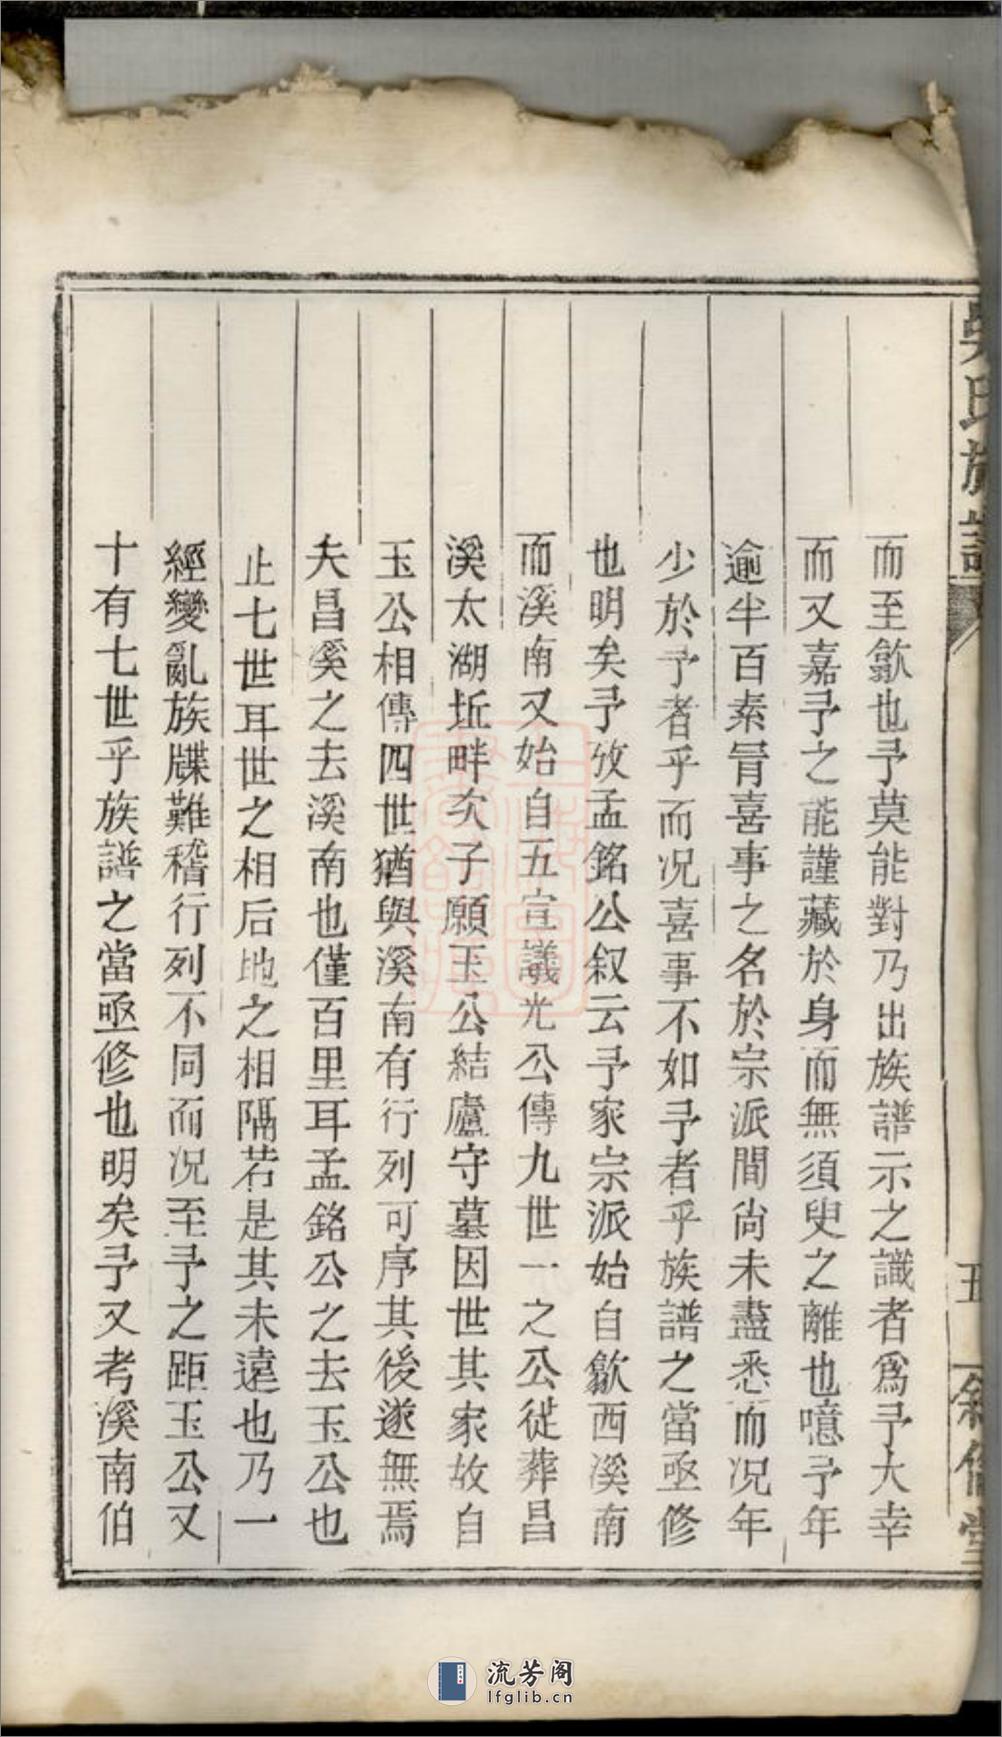 吳氏族譜
五
敘倫堂
而至歙也予莫能對乃出族譜示之識者爲予大幸
而又嘉予之能謹藏於身而無須臾之離也噫予年
逾半百素冐喜事之名於宗派間尙未盡悉而况年
少於予者乎而况喜事不如予者乎族譜之當亟修
也明矣予攷孟銘公叙云予家宗派始自歙西溪南
而溪南又始自五宣議光公傳九世一之公從葬昌
溪太湖坵畔次子願玉公結廬守墓因世其家故自
玉公相傳四世猶與溪南有行列可序其後遂無焉
夫昌溪之去溪南也僅百里耳孟銘公之去玉公也
止七世耳世之相后地之相隔若是其未遠也乃一
經變亂族牒難稽行列不同而况至予之距玉公又
十有七世乎族譜之當亟修也明矣予又考溪南伯
流芳阁
lfglib.cn